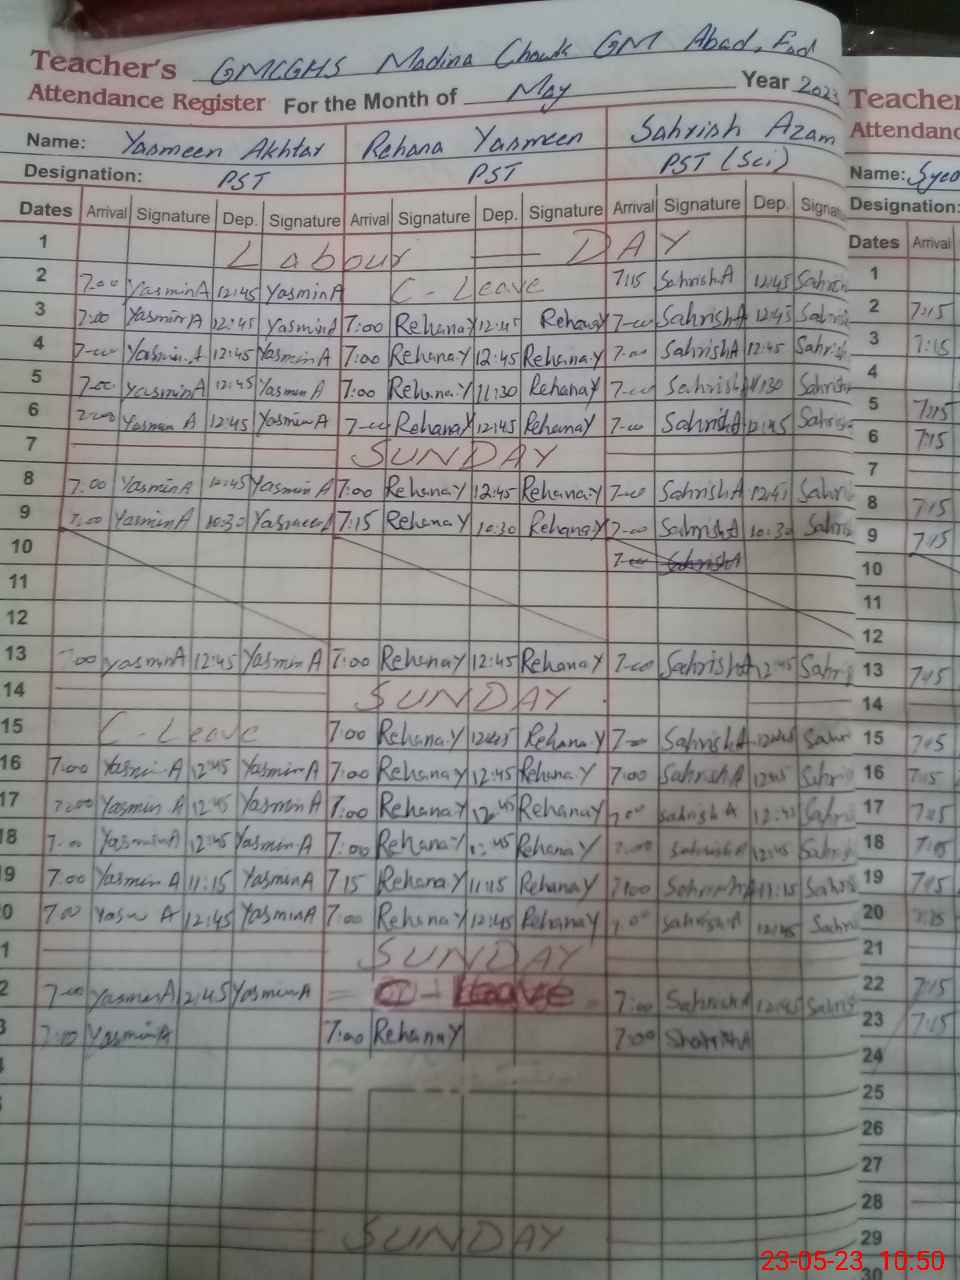 Teacher's GMCGHS Madina Chowk GM Abad, Fsd
Attendance Register For the Month of May Year 2023
Name: Yasmeen Akhtar Rehana Yasmeen Sahrish Azam
Designation: PST PST PST (Sci)
Dates Arrival Signature Dep. Signature Arrival Signature Dep. Signature Arrival Signature Dep. Signa
1 Labour — DAY
2 7.00 YasminA 12:45 YasminA C - Leave 7:15 SahrishA 12:45
3 7:00 YasminA 12:45 YasminA 7:00 RehanaY 12:45 RehanaY 7-00 SahrishA 12:45
4 7-00 YasminA 12:45 YasminA 7:00 RehanaY 12:45 RehanaY 7-00 SahrishA 12:45
5 7-00 YasminA 12:45 YasminA 7:00 RehanaY 11:30 RehanaY 7-00 SahrishA 11:30
6 7:00 YasminA 12:45 YasminA 7-00 RehanaY 12:45 RehanaY 7-00 SahrishA 12:45
7 SUNDAY
8 7.00 YasminA 12:45 YasminA 7:00 RehanaY 12:45 RehanaY 7-00 SahrishA 12:45
9 7:00 YasminA 10:30 7:15 RehanaY 10:30 RehanaY 7-00 SahrishA 10:30
10 7-00 SahrishA
11
12
13 7:00 YasminA 12:45 YasminA 7:00 RehanaY 12:45 RehanaY 7-00 SahrishA 12:45
14 SUNDAY
15 C - Leave 7:00 RehanaY 12:45 RehanaY 7-00 SahrishA 12:45
16 7:00 YasminA 12:45 YasminA 7:00 RehanaY 12:45 RehanaY 7:00 SahrishA 12:45
17 7:00 Yasmin A 12:45 YasminA 7:00 RehanaY 12:45 RehanaY 7:00 sahrish A 12:45
8 7:00 YasminA 12:45 YasminA 7:00 RehanaY 12:45 RehanaY 7:00 sahrishA 12:45
9 7.00 Yasmin A 11:15 YasminA 7 15 RehanaY 11:15 RehanaY 7:00 SahrishA 11:15
0 7.00 12:45 YasminA 7:00 RehanaY 12:45 RehanaY 7:00 sahrishA 12:45
1 SUNDAY
2 7-00 YasminA 12:45 YasminA Leave 7:00 SahrishA 12:45
3 7:00 YasminA 7:00 RehanaY 7:00 ShahrishA
SUNDAY
Teacher
Attendanc
Name: Syed
Designation:
Dates Arrival
1
2 7:15
3 7:15
4
5 7:15
6 7:15
7
8 7:15
9 7:15
10
11
12
13 7:15
14
15 7:15
16 7:15
17 7:15
18 7:15
19 7:15
20 7:15
21
22 7:15
23 7:15
24
25
26
27
28
29
30
23-05-23 10:50